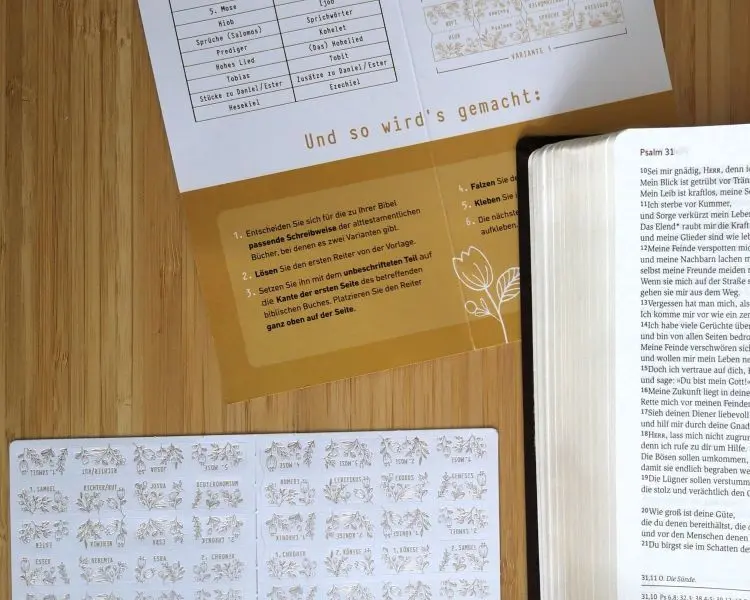 5. Mose
Ijob
Hiob
Sprichwörter
Sprüche (Salomos)
Kohelet
Prediger
(Das) Hohelied
Hohes Lied
Tobit
Tobias
Zusätze zu Daniel/Ester
Stücke zu Daniel/Ester
Ezechiel
Hesekiel
HIOB
VARIANTE 1
Und so wird's gemacht:
1. Entscheiden Sie sich für die zu Ihrer Bibel
passende Schreibweise der alttestamentlichen
Bücher, bei denen es zwei Varianten gibt.
2. Lösen Sie den ersten Reiter von der Vorlage.
3. Setzen Sie ihn mit dem unbeschrifteten Teil auf
die Kante der ersten Seite des betreffenden
biblischen Buches. Platzieren Sie den Reiter
ganz oben auf der Seite.
4. Falzen Sie
5. Kleben Sie
6. Die nächste
aufkleben.
Psalm 31
10Sei mir gnädig, HERR, denn
Mein Blick ist getrübt vor
Mein Leib ist kraftlos, meine
11Ich sterbe vor Kummer,
und Sorge verkürzt mein
Das Elend* raubt mir die
und meine Glieder sind wie
12Meine Feinde verspotten
und meine Nachbarn lachen
selbst meine Freunde meiden
Wenn sie mich auf der Straße
gehen sie mir aus dem Weg.
13Vergessen hat man mich,
Ich komme mir vor wie ein
14Ich habe viele Gerüchte
und bin von allen Seiten
Meine Feinde verschwören
und wollen mir mein Leben
15Doch ich vertraue auf dich,
und sage: »Du bist mein Gott!«
16Meine Zukunft liegt in
Rette mich vor meinen
17Sieh deinen Diener liebevoll
und hilf mir durch deine
18HERR, lass mich nicht
denn ich rufe zu dir um Hilfe.
Die Bösen sollen umkommen,
damit sie endlich begraben
19Die Lügner sollen
die stolz und verächtlich den
20Wie groß ist deine Güte,
die du denen bereithältst, die
und vor den Menschen denen
21Du birgst sie im Schatten
31,11 O. Die Sünde.
31,10 Ps 6,8;
1. SAMUEL
RICHTER/RUT
JOSUA
5. MOSE
4. MOSE
3. MOSE
2. MOSE
1. MOSE
1. SAMUEL
RICHTER/RUT
JOSUA
DEUTERONOMIUM
NUMERI
LEVITIKUS
EXODUS
GENESIS
ESTER
NEHEMIA
ESRA
2. CHRONIK
1. CHRONIK
2. KÖNIGE
1. KÖNIGE
2. SAMUEL
ESTER
NEHEMIA
ESRA
2. CHRONIK
1. CHRONIK
2. KÖNIGE
1. KÖNIGE
2. SAMUEL